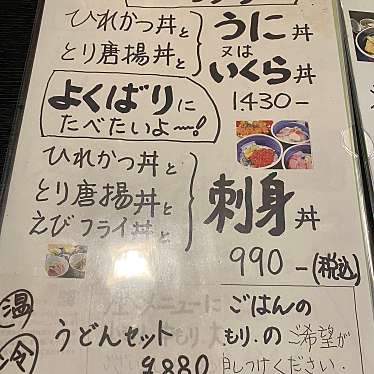 ひれかつ丼と
とり唐揚丼と
うに丼
又は
いくら丼
1.430-
よくばりに
たべたいよ〜!
ひれかつ丼と
とり唐揚丼と
えびフライ丼と
刺身丼
990-(税込)
温
冷
うどんセット
¥880
ごはんの
もり.の ご希望が
申しつけください.